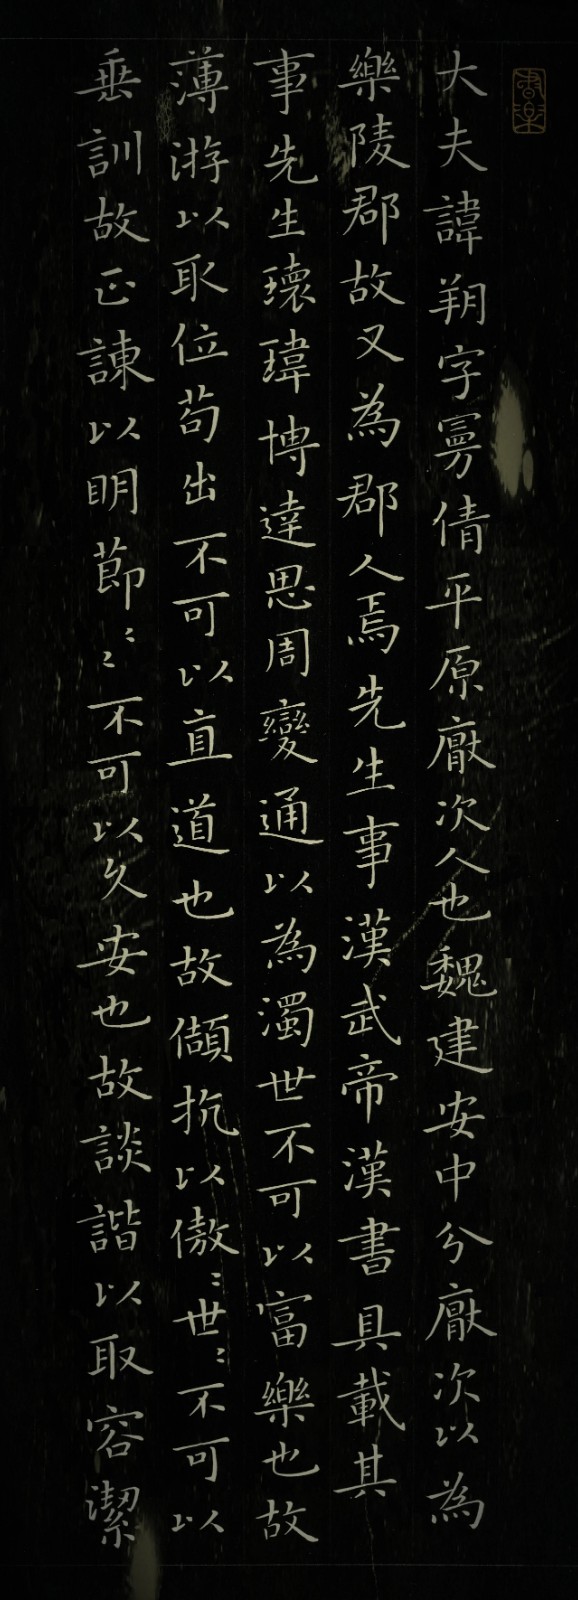 大夫諱朔字曼倩平原厭次人也魏建安中分厭次以為
樂陵郡故又為郡人焉先生事漢武帝漢書具載其
事先生瓌瑋博達思周變通以為濁世不可以富樂也故
薄游以取位苟出不可以直道也故頡抗以傲〻世〻不可以
垂訓故正諫以明節〻〻不可以久安也故談諧以取容潔